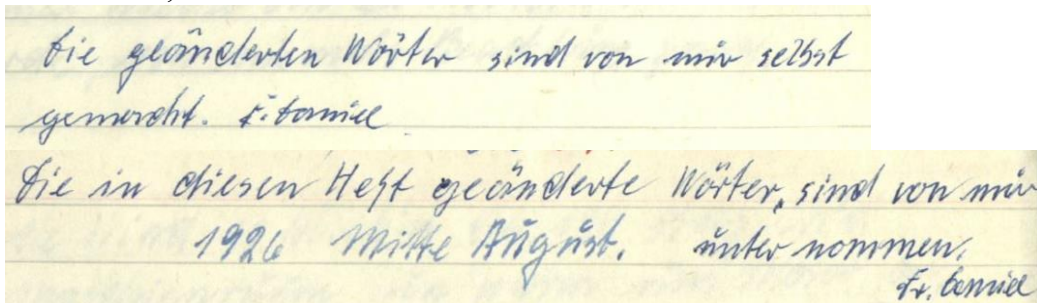 Die geänderten Wörter sind von mir selbst
gemacht. F. Daniel
Die in diesen Heft geänderte Wörter, sind von mir
1926 Mitte August. unter nommen.
Fr. Daniel